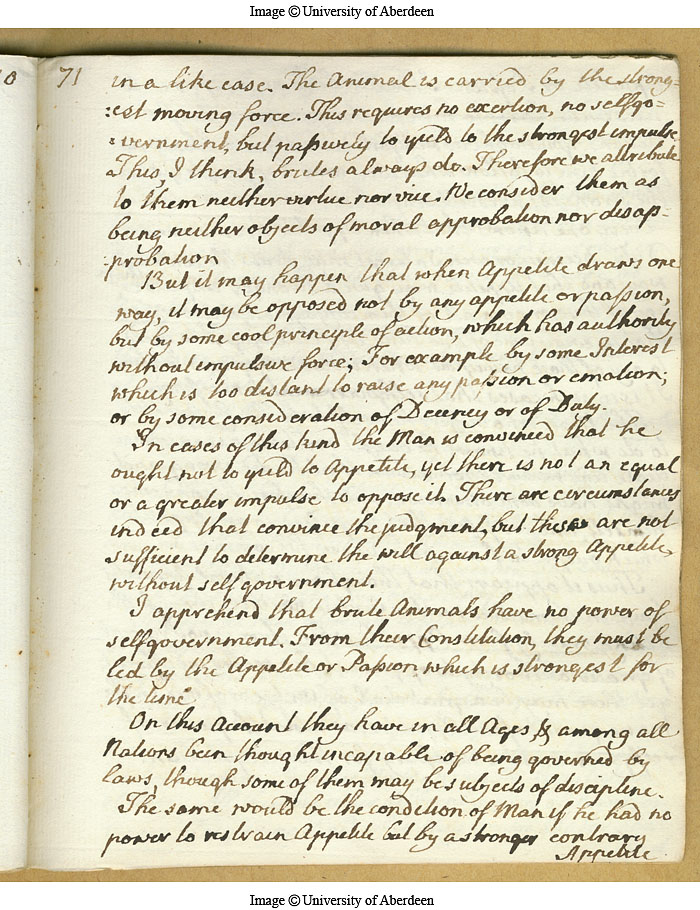 Image © University of Aberdeen
71
in a like case. The Animal is carried by the strong=
:est moving force. This requires no exertion, no selfgo=
:vernment, but passively to yield to the strongest impulse
This, I think, brutes always do. Therefore we attribute
to them neither virtue nor vice. We consider them as
being neither objects of moral approbation nor disap=
:probation
But it may happen that when Appetite draws one
way, it may be opposed not by any appetite or passion,
but by some cool principle of action, which has authority
without impulsive force; For example by some Interest
which is too distant to raise any passion or emotion;
or by some consideration of Decency or of Duty.
In cases of this kind the Man is convinced that he
ought not to yield to Appetite, yet there is not an equal
or a greater impulse to oppose it. There are circumstances
indeed that convince the judgment, but these are not
sufficient to determine the will against a strong Appetite,
without self government.
I apprehend that brute Animals have no power of
selfgovernment. From their Constitution, they must be
led by the Appetite or Passion which is strongest for
the time
On this account they have in all Ages & among all
Nations been thought incapable of being governed by
laws, though some of them may be subjects of discipline.
The same would be the condition of Man if he had no
power to restrain Appetite but by a stronger contrary
Appetite
Image © University of Aberdeen